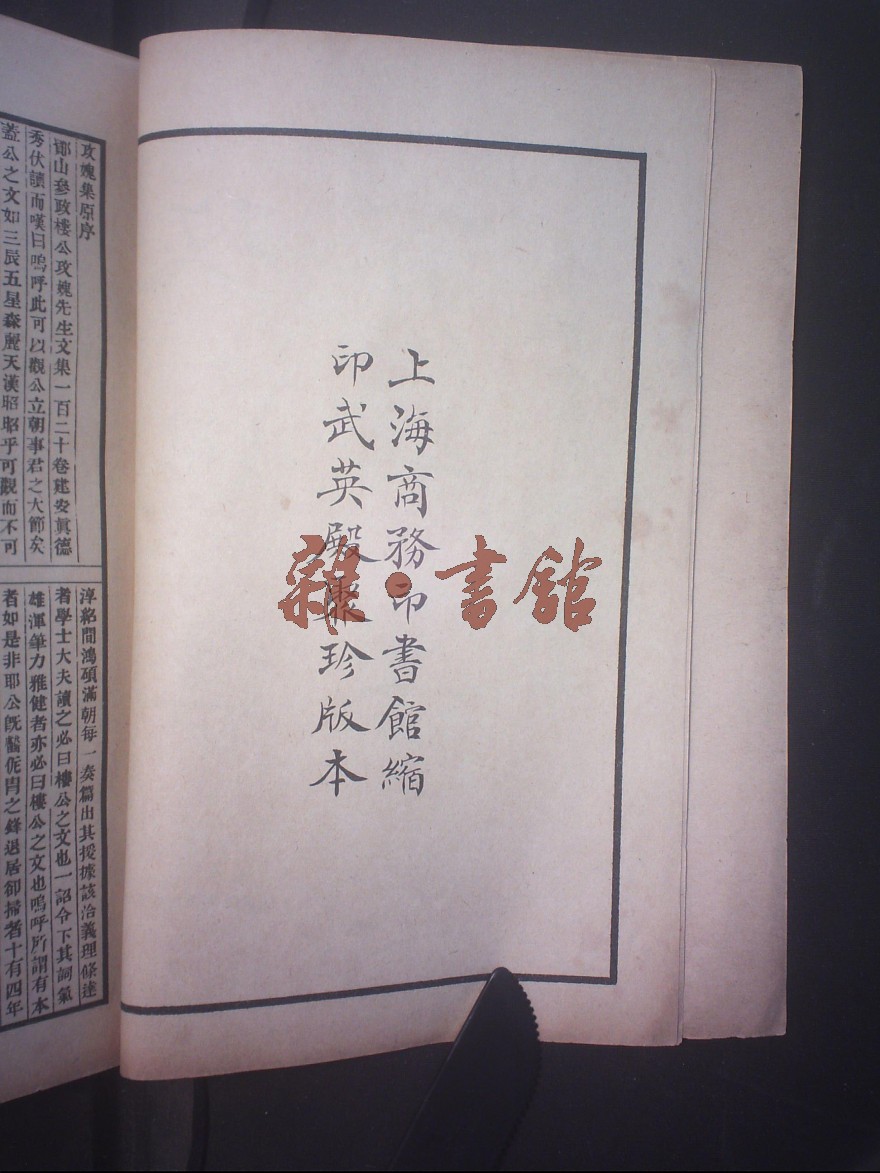 上海商務印書館縮
印武英殿聚珍版本
雜·書館
攻媿集原序
鄮山參政樓公攻媿先生文集一百二十卷建安眞德
秀伏讀而嘆曰嗚呼此可以觀公立朝事君之大節矣
蓋公之文如三辰五星森麗天漢昭昭乎可觀而不可
淳紹間鴻碩滿朝每一奏篇出其援據該洽義理條達
者學士大夫讀之必曰樓公之文也一詔令下其詞氣
雄渾筆力雅健者亦必曰樓公之文也嗚呼所謂有本
者如是非耶公旣齾侂胄之鋒退居卻掃者十有四年